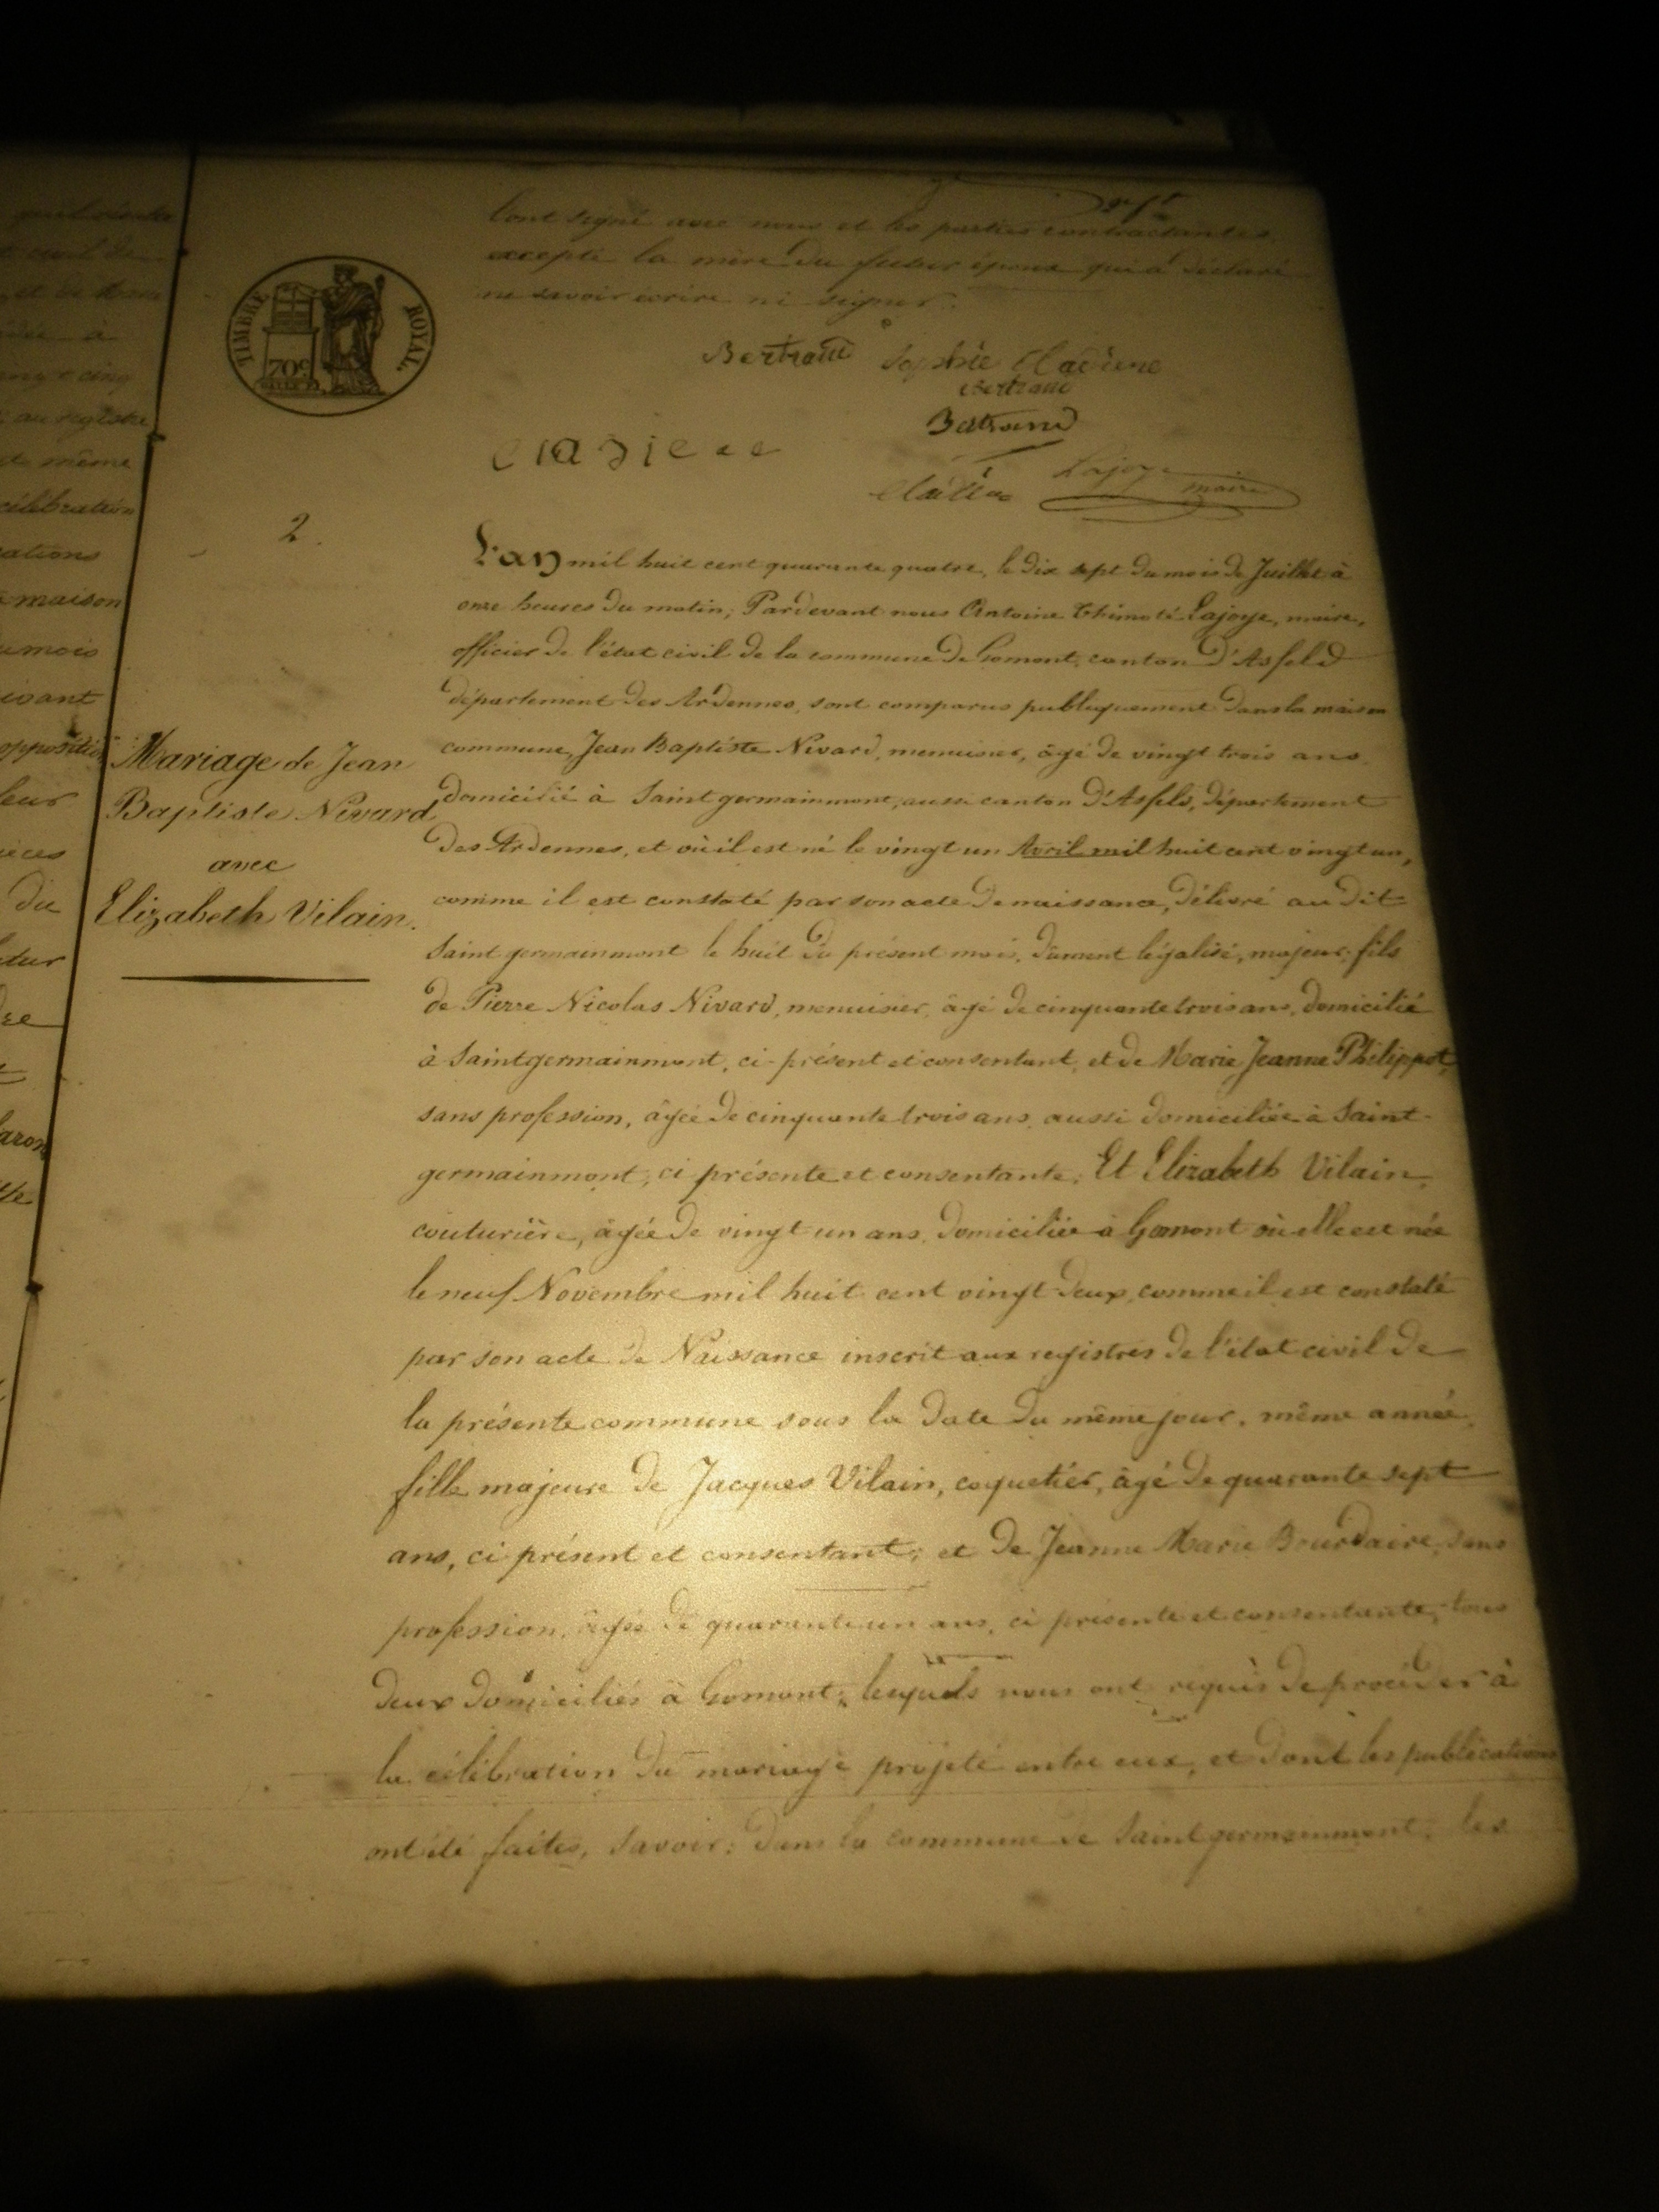 l'ont signé avec nous et les parties contractantes
excepté la mère du futur époux qui a déclaré
ne savoir écrire ni signer.
TIMBRE ROYAL
70c
Bertrand Sophie
Bertrand
Bertrand
Lajoye
maire
2.
L'an mil huit cent quarante quatre, le dix sept du mois de Juillet à
onze heures du matin; Pardevant nous Antoine Thimoté Lajoye, maire,
officier de l'état civil de la commune de Gomont, canton D'Asfeld
département des Ardennes, sont comparus publiquement dans la maison
commune, Jean Baptiste Nivard, menuisier, âgé de vingt trois ans
domicilié à Saint germainmont, aussi canton D'Asfeld, département
des Ardennes, et où il est né le vingt un Avril mil huit cent vingt un,
comme il est constaté par son acte de naissance, délivré au dit
Saint germainmont le huit du présent mois, dûment légalisé, majeur, fils
de Pierre Nicolas Nivard, menuisier, âgé de cinquante trois ans, domicilié
à Saintgermainmont, ci-présent et consentant, et de Marie Jeanne Philippot,
sans profession, âgée de cinquante trois ans, aussi domiciliée à Saint-
germainmont, ci présente et consentante; Et Elizabeth Vilain,
couturière, âgée de vingt un ans, domiciliée à Gomont où elle est née
le neuf Novembre mil huit cent vingt deux, comme il est constaté
par son acte de Naissance inscrit aux registres de l'état civil de
la présente commune sous la date du même jour, même année,
fille majeure de Jacques Vilain, coquetier, âgé de quarante sept
ans, ci présent et consentant; et de Jeanne Marie Bourdaire, sans
profession, âgée de quarante un ans, ci présente et consentante, tous
deux domiciliés à Gomont; lesquels nous ont requis de procéder à
la célébration du mariage projeté entre eux, et dont les publications
ont été faites, savoir: dans la commune de Saint germainmont, les
Mariage de Jean
Baptiste Nivard
avec
Elizabeth Vilain.
vingt cinq
au registre
même
célébration
maison
mois
opposition
leur
du